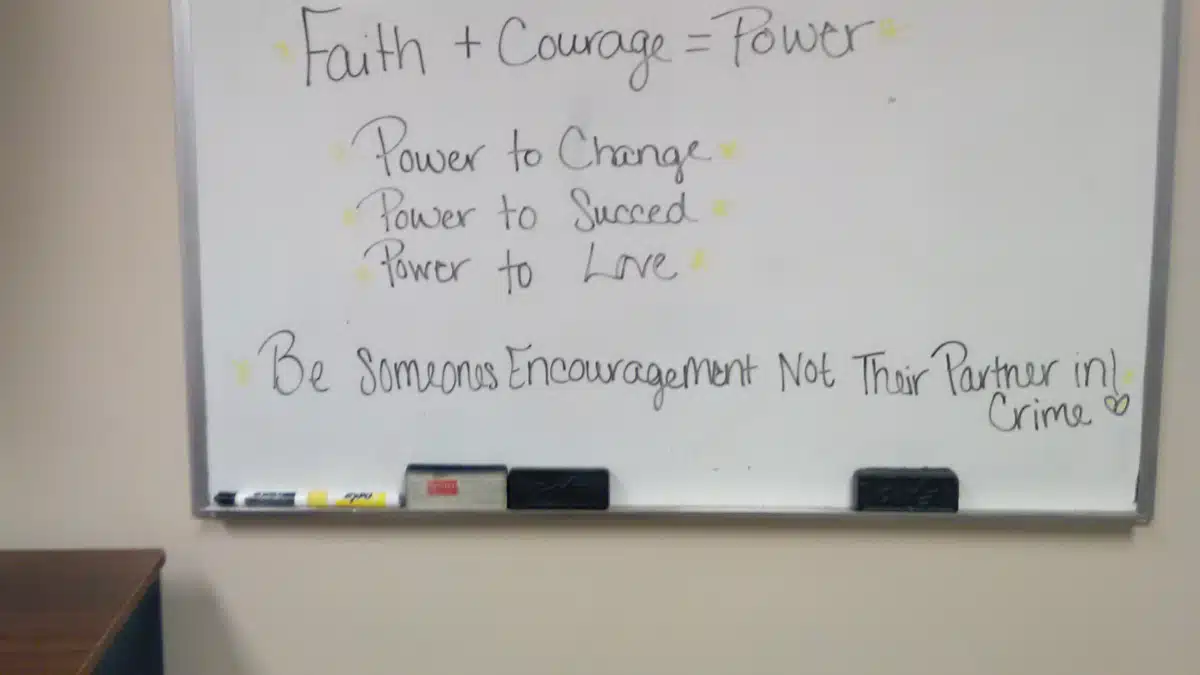 Faith + Courage = Power
Power to Change
Power to Succed
Power to Love
Be Someones Encouragement Not Their Partner in
Crime
expo